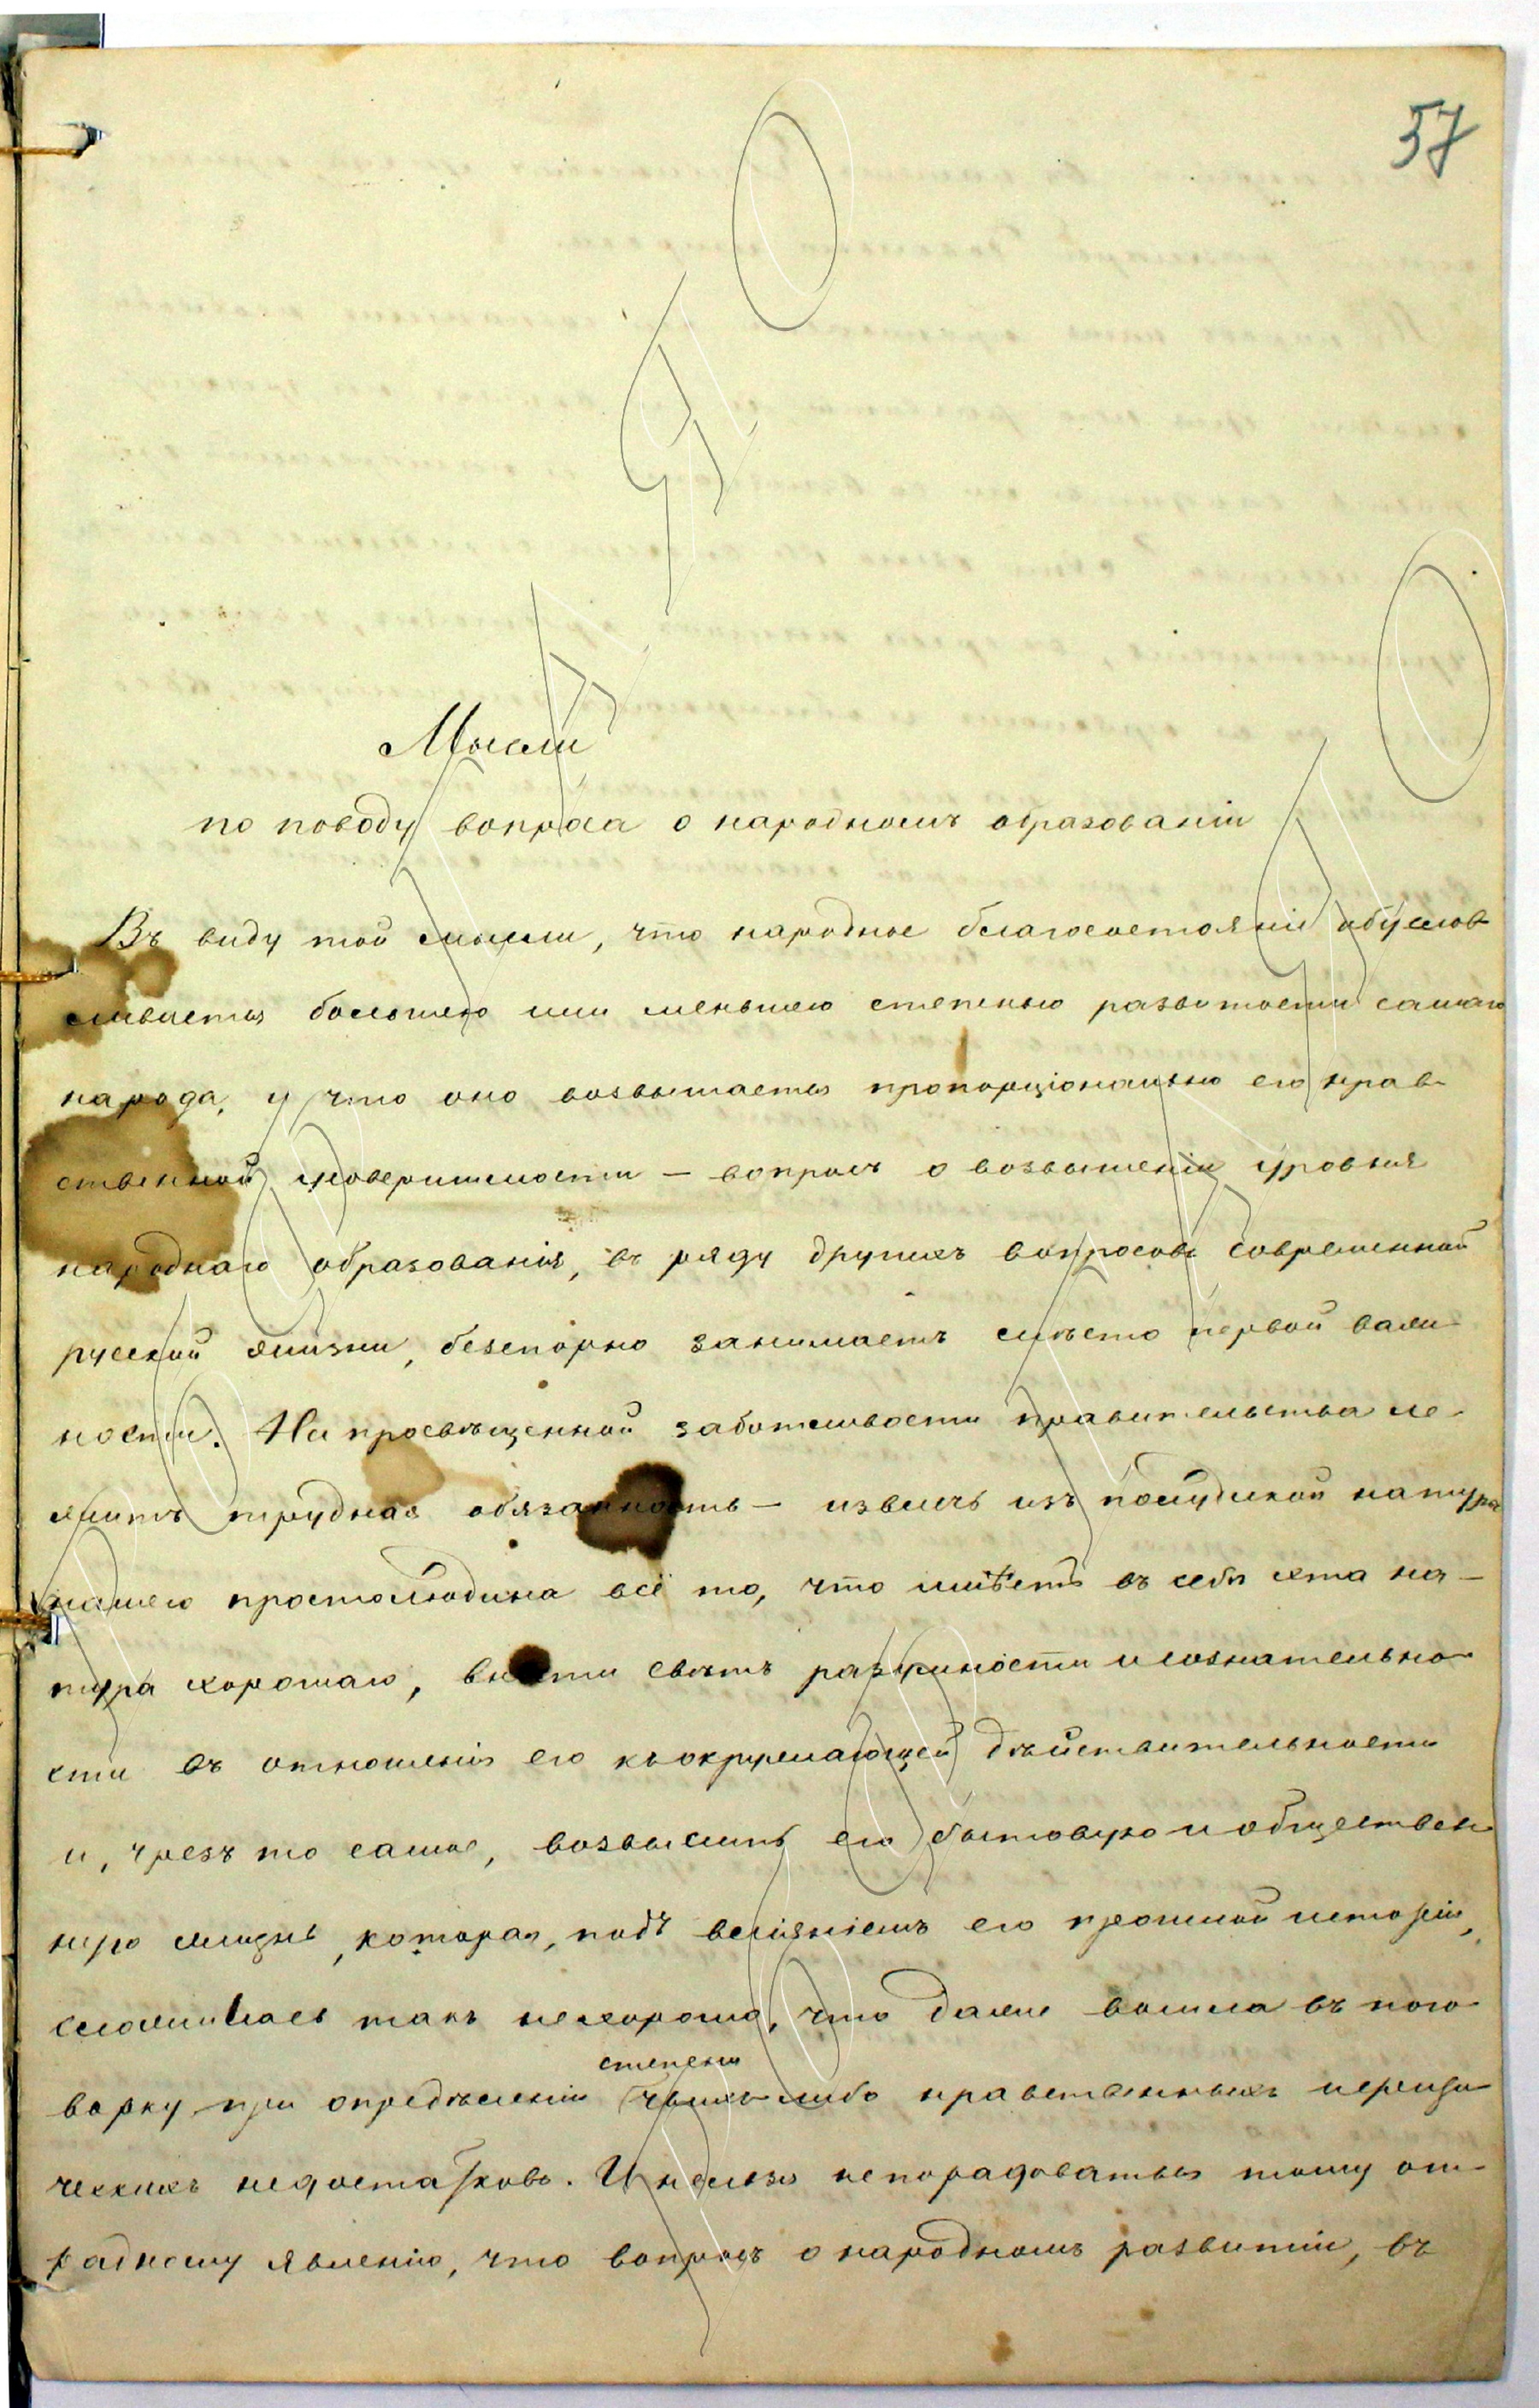 57
Мысли
по поводу вопроса о народномъ образованіи
Въ виду той мысли, что народное благосостояніе обуслов
ливается большею или меньшею степенью развитости самаго
народа, и что оно возвышается пропорціонально его нрав-
ственной усовершимости — вопросъ о возвышеніи уровня
народнаго образованія, въ ряду другихъ вопросовъ современной
русской жизни, безспорно занимаетъ мѣсто первой важ-
ности. На просвѣщенной заботливости правительства ле-
житъ трудная обязанность — извлечь изъ полудикой натуры
нашего простолюдина всё то, что имѣетъ въ себѣ эта на-
тура хорошаго, внести свѣтъ разумности и сознательно-
сти въ отношенія его къ окружающей дѣйствительности
и, чрезъ то самое, возвысить его бытовую и обществен-
ную жизнь, которая, подъ вліяніемъ его прошлой исторіи,
сложилась такъ нехорошо, что даже вошла въ пого-
степени
ворку при опредѣленіи чьихъ либо нравственныхъ и физи
ческихъ недостатковъ. И нельзя непорадоваться тому от-
радному явленію, что вопросъ о народномъ развитіи, въ